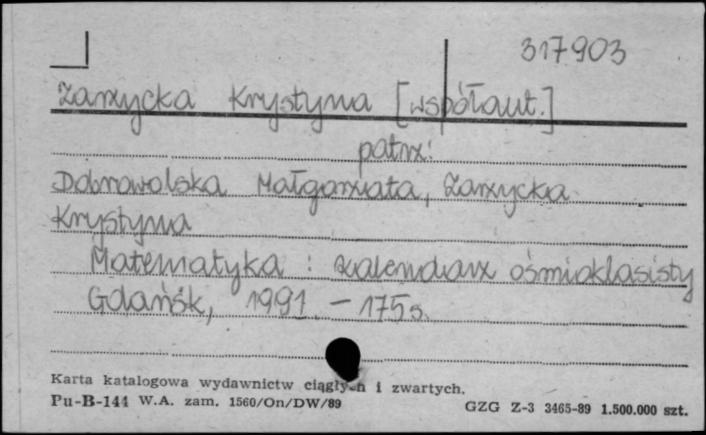 317903
Zarzycka Krystyna [współaut.]
patrz:
Dobrowolska Małgorzata, Zarzycka
Krystyna
Matematyka : kalendarz ośmioklasisty
Gdańsk, 1991. – 175 s.
Karta katalogowa wydawnictw ciągłych i zwartych.
Pu-B-144 W.A. zam. 1560/On/DW/89
GZG Z-3 3465-89 1.500.000 szt.